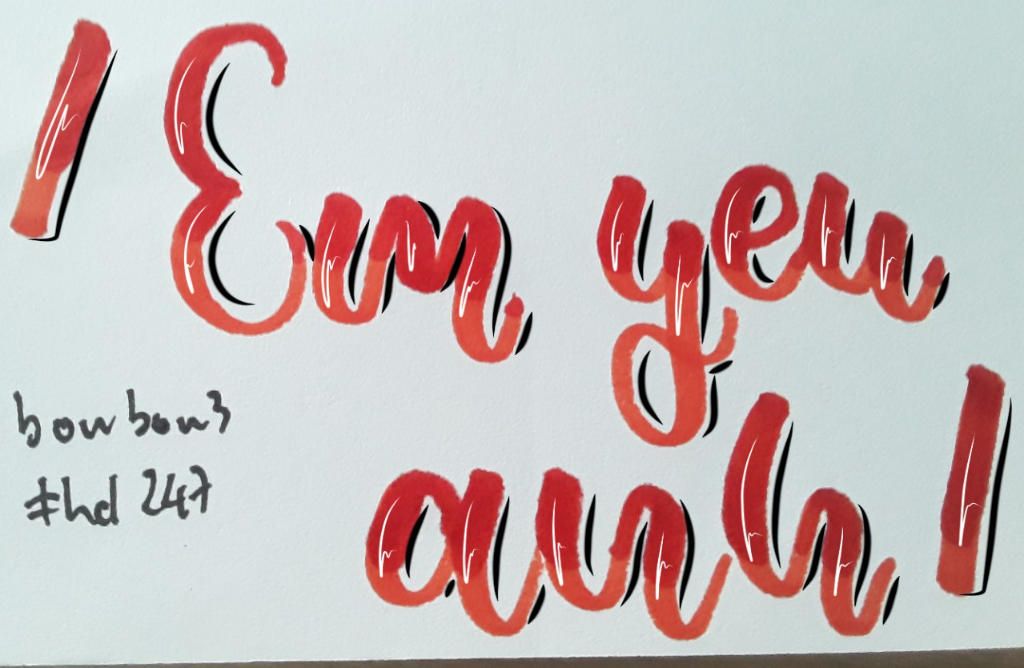 Em yeu
anh
bonbon3
#hd 247